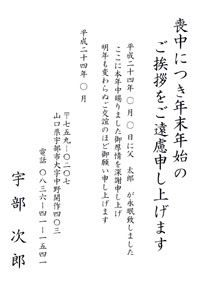 喪中につき年末年始の
ご挨拶をご遠慮申し上げます
平成二十四年 〇月 〇日に父 太郎 が永眠致しました
ここに本年中賜りました御厚情を深謝申し上げ
明年も変わらぬご交誼のほど御願い申し上げます
平成二十四年 〇月
〒七五九―〇二〇七
山口県宇部市大字中野開作四〇三
電話 〇八三六―四一―一五四一
宇部 次郎